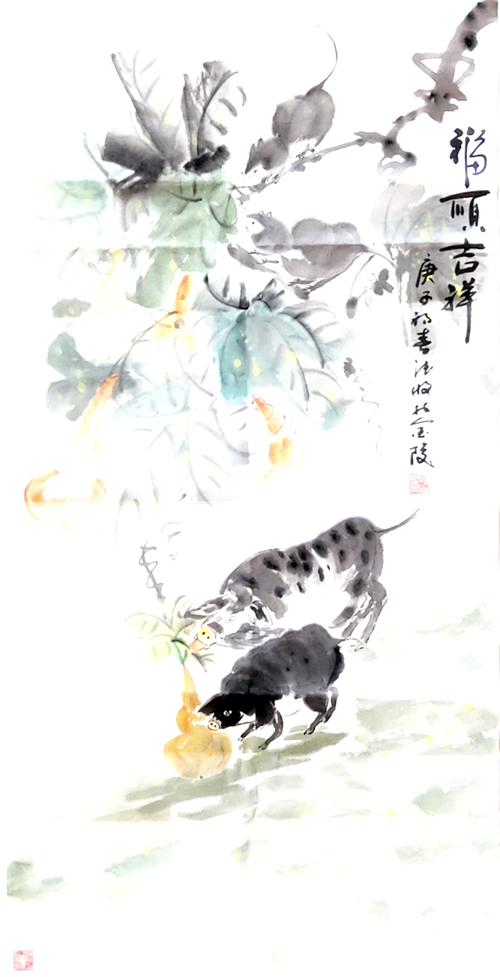 福順吉祥
庚子初春於金陵